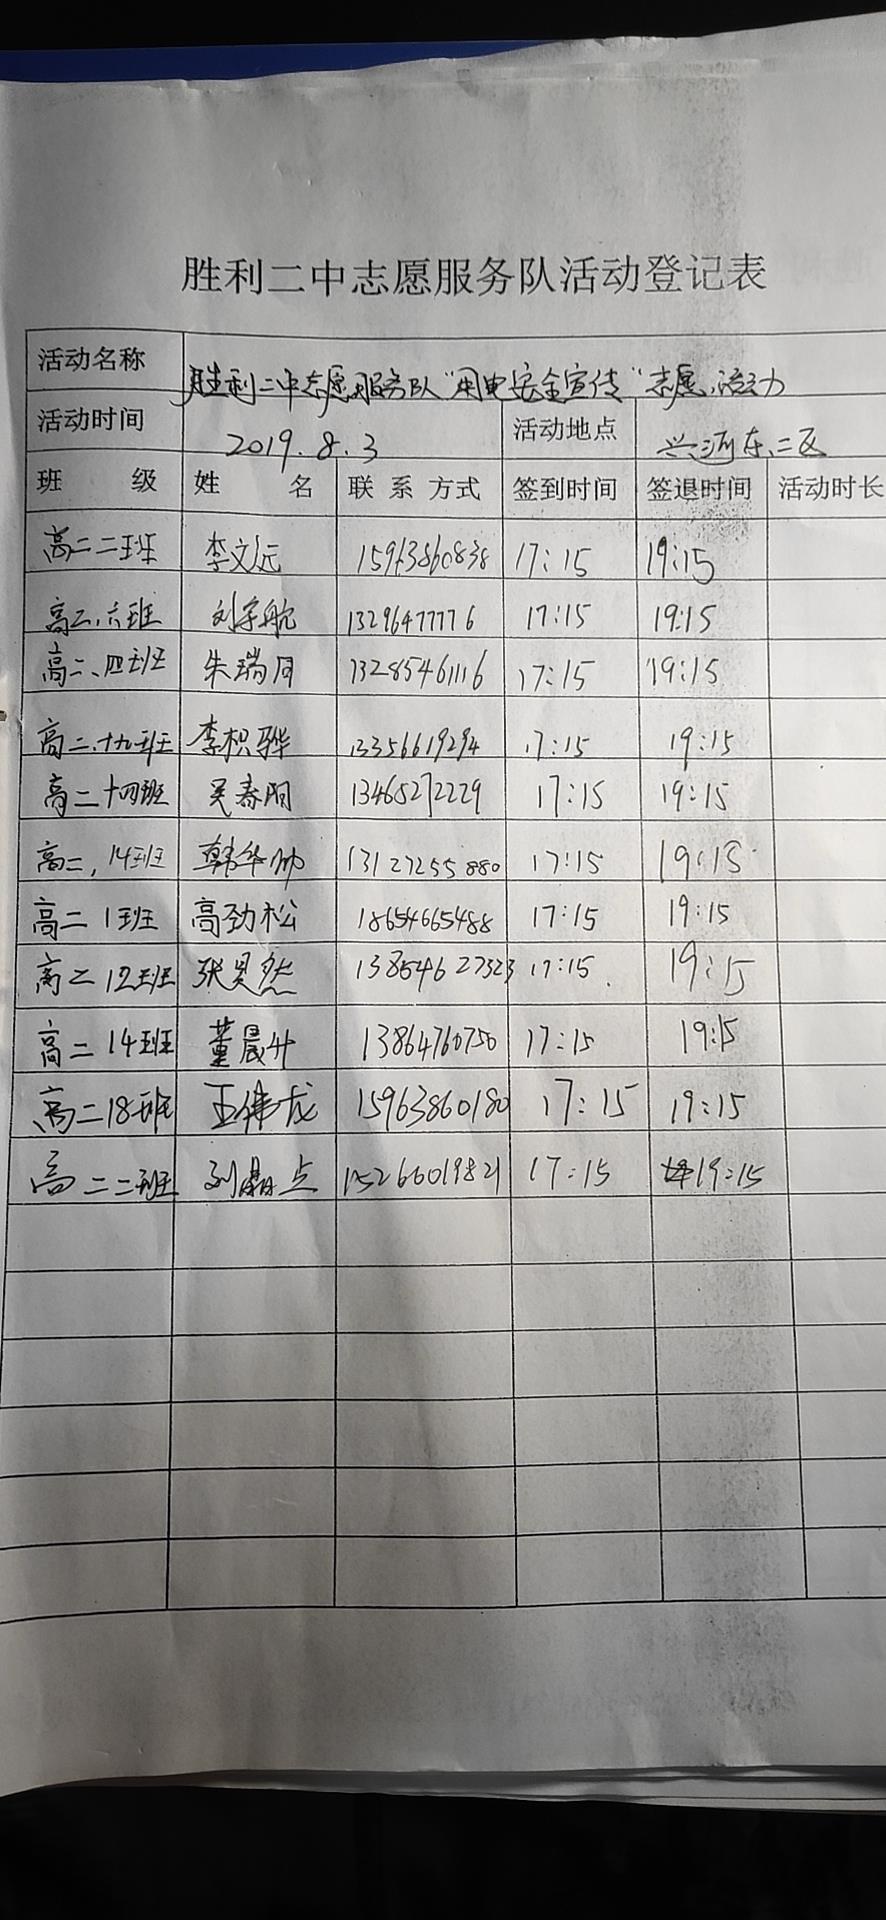 胜利二中志愿服务队活动登记表
活动名称 胜利二中志愿服务队"用电安全宣传"志愿活动
活动时间 2019.8.3 活动地点 兴河东二区
班 级 姓 名 联 系 方式 签到时间 签退时间 活动时长
高二二班 李文远 15963860838 17:15 19:15
高二、六班 刘宇航 13296477776 17:15 19:15
高二、四班 朱瑞同 13285461116 17:15 19:15
高二、十九班 李枳骅 13356619294 17:15 19:15
高二十四班 吴春阳 13465272229 17:15 19:15
高二,14班 韩华帅 13127255880 17:15 19:15
高二1班 高劲松 18654665488 17:15 19:15
高二12班 张昊然 13854627323 17:15. 19:15
高二14班 董晨升 13864760750 17:15 19:15
高二18班 王伟龙 15963860180 17:15 19:15
高二二班 刘 点 15266019821 17:15 19:15